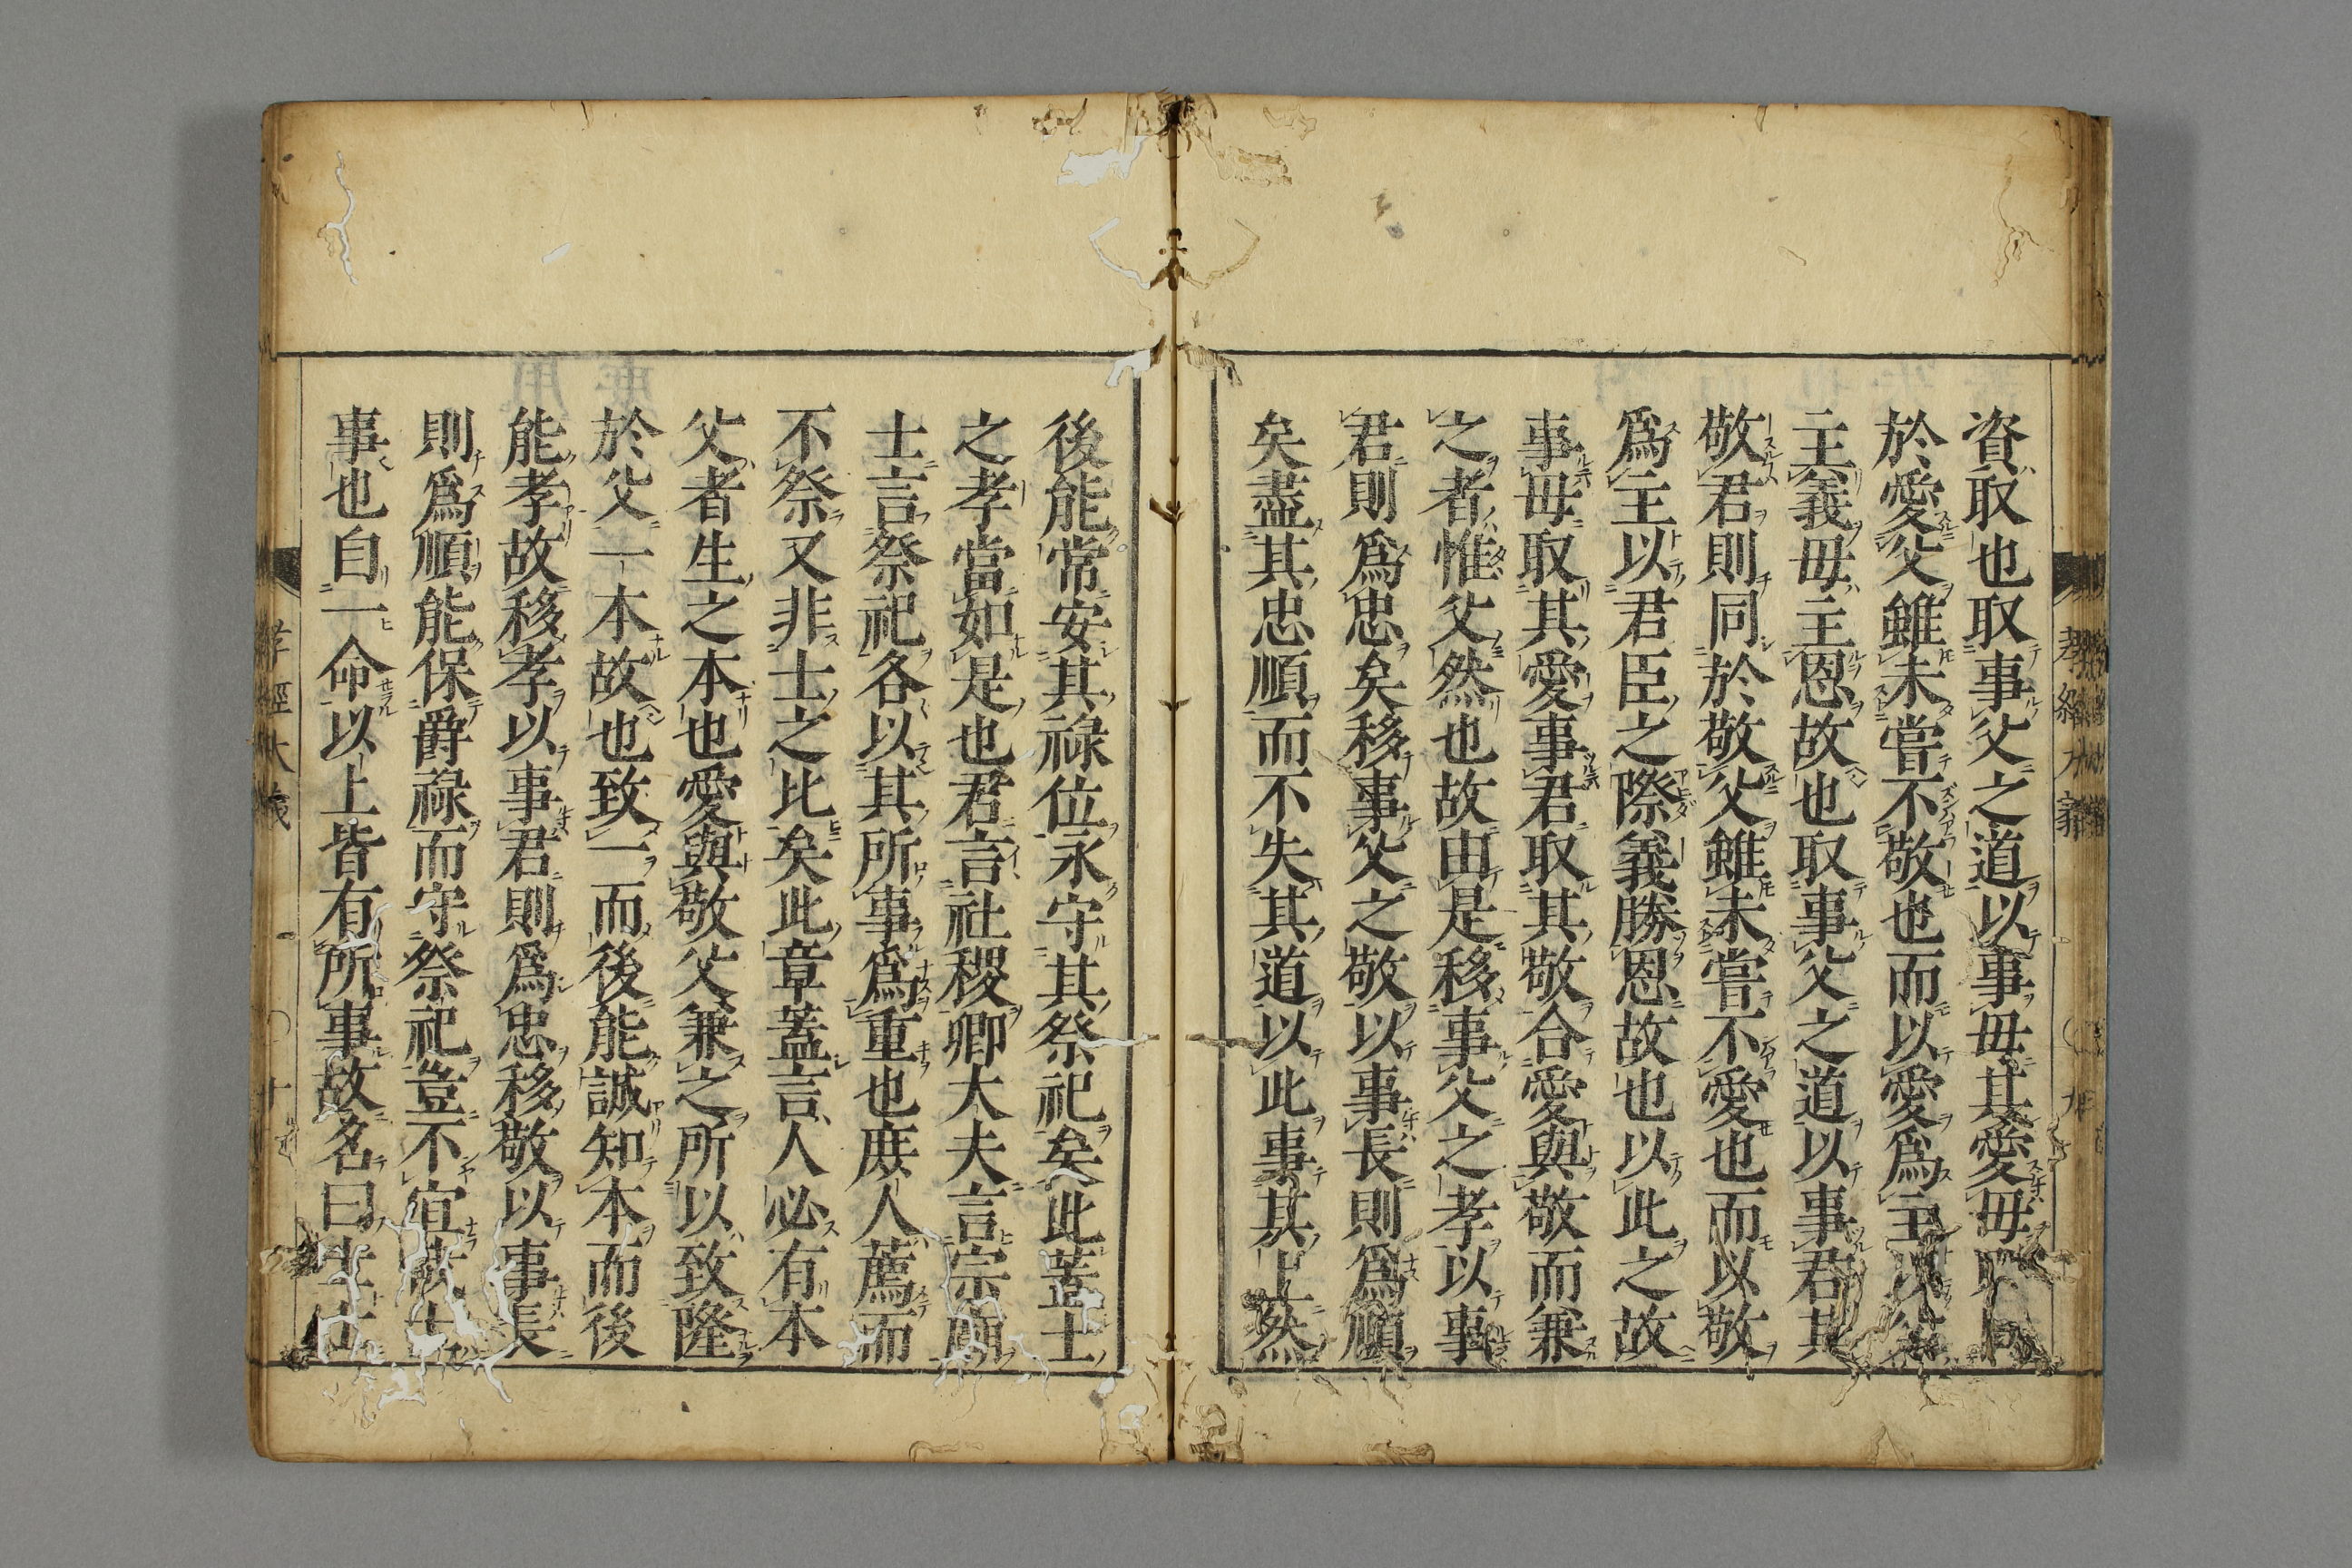 資取也取事父之道以事毋其愛毋則同
於愛父雖未嘗不敬也而以愛爲主以父
主義毋主恩故也取事父之道以事君其
敬君則同於敬父雖未嘗不愛也而以敬
爲主以君臣之際義勝恩故也以此之故
事毋取其愛事君取其敬合愛與敬而兼
之者惟父然也故由是移事父之孝以事
君則爲忠矣移事父之敬以事長則爲順
矣盡其忠順而不失其道以此事其上然
後能常安其祿位永守其祭祀矣此蓋士
之孝當如是也君言社稷卿大夫言宗廟
士言祭祀各以其所事爲重也庶人薦而
不祭又非士之比矣此章蓋言人必有本
父者生之本也愛與敬父兼之所以致隆
於父一本故也致一而後能誠知本而後
能孝故移孝以事君則爲忠移敬以事長
則爲順能保爵祿而守祭祀豈不宜哉士
事也自一命以上皆有所事故名曰士
孝經大義
十